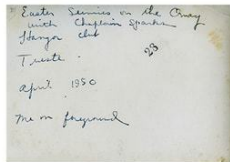 Easter Services on the Quay
with Chaplain Sparks
Hangar club
23
Trieste
April 1950
me on foreground